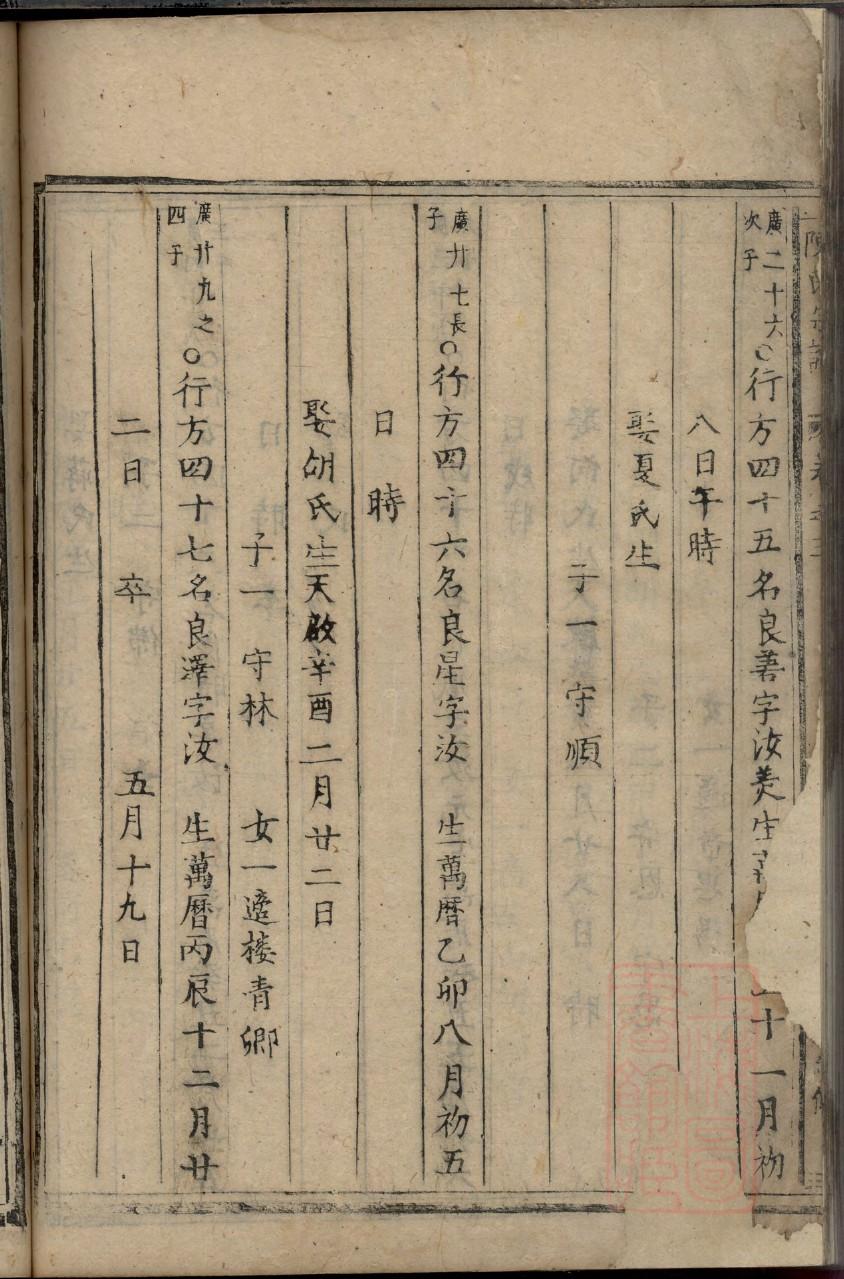 陳氏宗譜
廣二十六次子○行方四十五名良善字汝羙生 十一月初
八日午時
娶夏氏生
子一 守順
廣廿七長子○行方四十六名良星字汝 生萬曆乙卯八月初五
日 時
娶胡氏生天啟辛酉二月廿二日
子一 守林 女一適楼青卿
廣廿九之四子○行方四十七名良澤字汝 生萬曆丙辰十二月廿
二日 卒 五月十九日